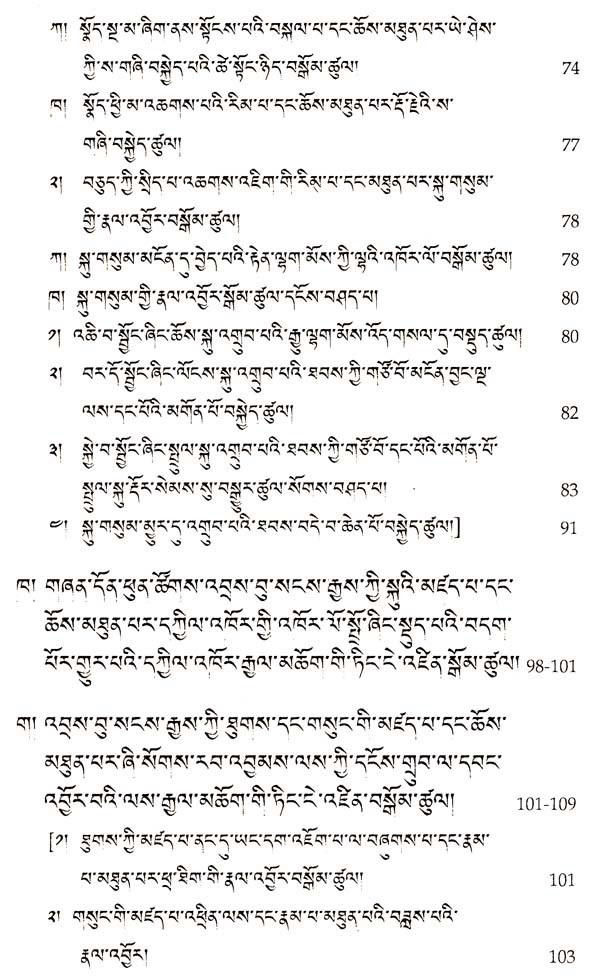 ཀ། སྣོད་སྔ་མ་ཞིག་ནས་སྟོངས་པའི་བསྐལ་པ་དང་ཆོས་མཐུན་པར་ཡེ་ཤེས་
ཀྱི་ས་གཞི་བསྐྱེད་པའི་ཚེ་སྟོང་ཉིད་བསྒོམ་ཚུལ། 74
ཁ། སྣོད་ཕྱི་མ་འཆགས་པའི་རིམ་པ་དང་ཆོས་མཐུན་པར་རྡོ་རྗེའི་ས་
གཞི་བསྐྱེད་ཚུལ། 77
༢། བཅུད་ཀྱི་སྲིད་པ་འཆགས་འཇིག་གི་རིམ་པ་དང་མཐུན་པར་སྐུ་གསུམ་
གྱི་རྣལ་འབྱོར་བསྒོམ་ཚུལ། 78
ཀ། སྐུ་གསུམ་མངོན་དུ་བྱེད་པའི་རྟེན་ལྷག་མོས་ཀྱི་ལྷའི་འཁོར་ལོ་བསྒོམ་ཚུལ། 78
ཁ། སྐུ་གསུམ་གྱི་རྣལ་འབྱོར་སྒོམ་ཚུལ་དངོས་བཤད་པ། 80
༡། འཆི་བ་སྦྱོང་ཞིང་ཆོས་སྐུ་འགྲུབ་པའི་རྒྱུ་ལྷག་མོས་འོད་གསལ་དུ་བསྡུད་ཚུལ། 80
༢། བར་དོ་སྦྱོང་ཞིང་ལོངས་སྐུ་འགྲུབ་པའི་ཐབས་ཀྱི་གཙོ་བོ་མངོན་བྱང་ལྔ་
ལས་དང་པོའི་མགོན་པོ་བསྐྱེད་ཚུལ། 82
༣། སྐྱེ་བ་སྦྱོང་ཞིང་སྤྲུལ་སྐུ་འགྲུབ་པའི་ཐབས་ཀྱི་གཙོ་བོ་དང་པོའི་མགོན་པོ་
སྤྲུལ་སྐུ་རྡོར་སེམས་སུ་བསྒྱུར་ཚུལ་སོགས་བཤད་པ། 83
༤། སྐུ་གསུམ་མྱུར་དུ་འགྲུབ་པའི་ཐབས་བདེ་བ་ཆེན་པོ་བསྐྱེད་ཚུལ།] 91
ཁ། གཞན་དོན་ཕུན་ཚོགས་འབྲས་བུ་སངས་རྒྱས་ཀྱི་སྐུའི་མཛད་པ་དང་
ཆོས་མཐུན་པར་དཀྱིལ་འཁོར་གྱི་འཁོར་ལོ་སྤྲོ་ཞིང་སྡུད་པའི་བདག་
པོར་གྱུར་པའི་དཀྱིལ་འཁོར་རྒྱལ་མཆོག་གི་ཏིང་ངེ་འཛིན་སྒོམ་ཚུལ། 98-101
ག། འབྲས་བུ་སངས་རྒྱས་ཀྱི་ཐུགས་དང་གསུང་གི་མཛད་པ་དང་ཆོས་
མཐུན་པར་ཞི་སོགས་རབ་འབྱམས་ལས་ཀྱི་དངོས་གྲུབ་ལ་དབང་
འབྱོར་བའི་ལས་རྒྱལ་མཆོག་གི་ཏིང་ངེ་འཛིན་བསྒོམ་ཚུལ། 101-109
[༡། ཐུགས་ཀྱི་མཛད་པ་ནང་དུ་ཡང་དག་འཇོག་པ་ལ་བཞུགས་པ་དང་རྣམ་
པ་མཐུན་པར་ཕྲ་ཐིག་གི་རྣལ་འབྱོར་བསྒོམ་ཚུལ། 101
༢། གསུང་གི་མཛད་པ་འཕྲིན་ལས་དང་རྣམ་པ་མཐུན་པའི་བཟླས་པའི་
རྣལ་འབྱོར། 103